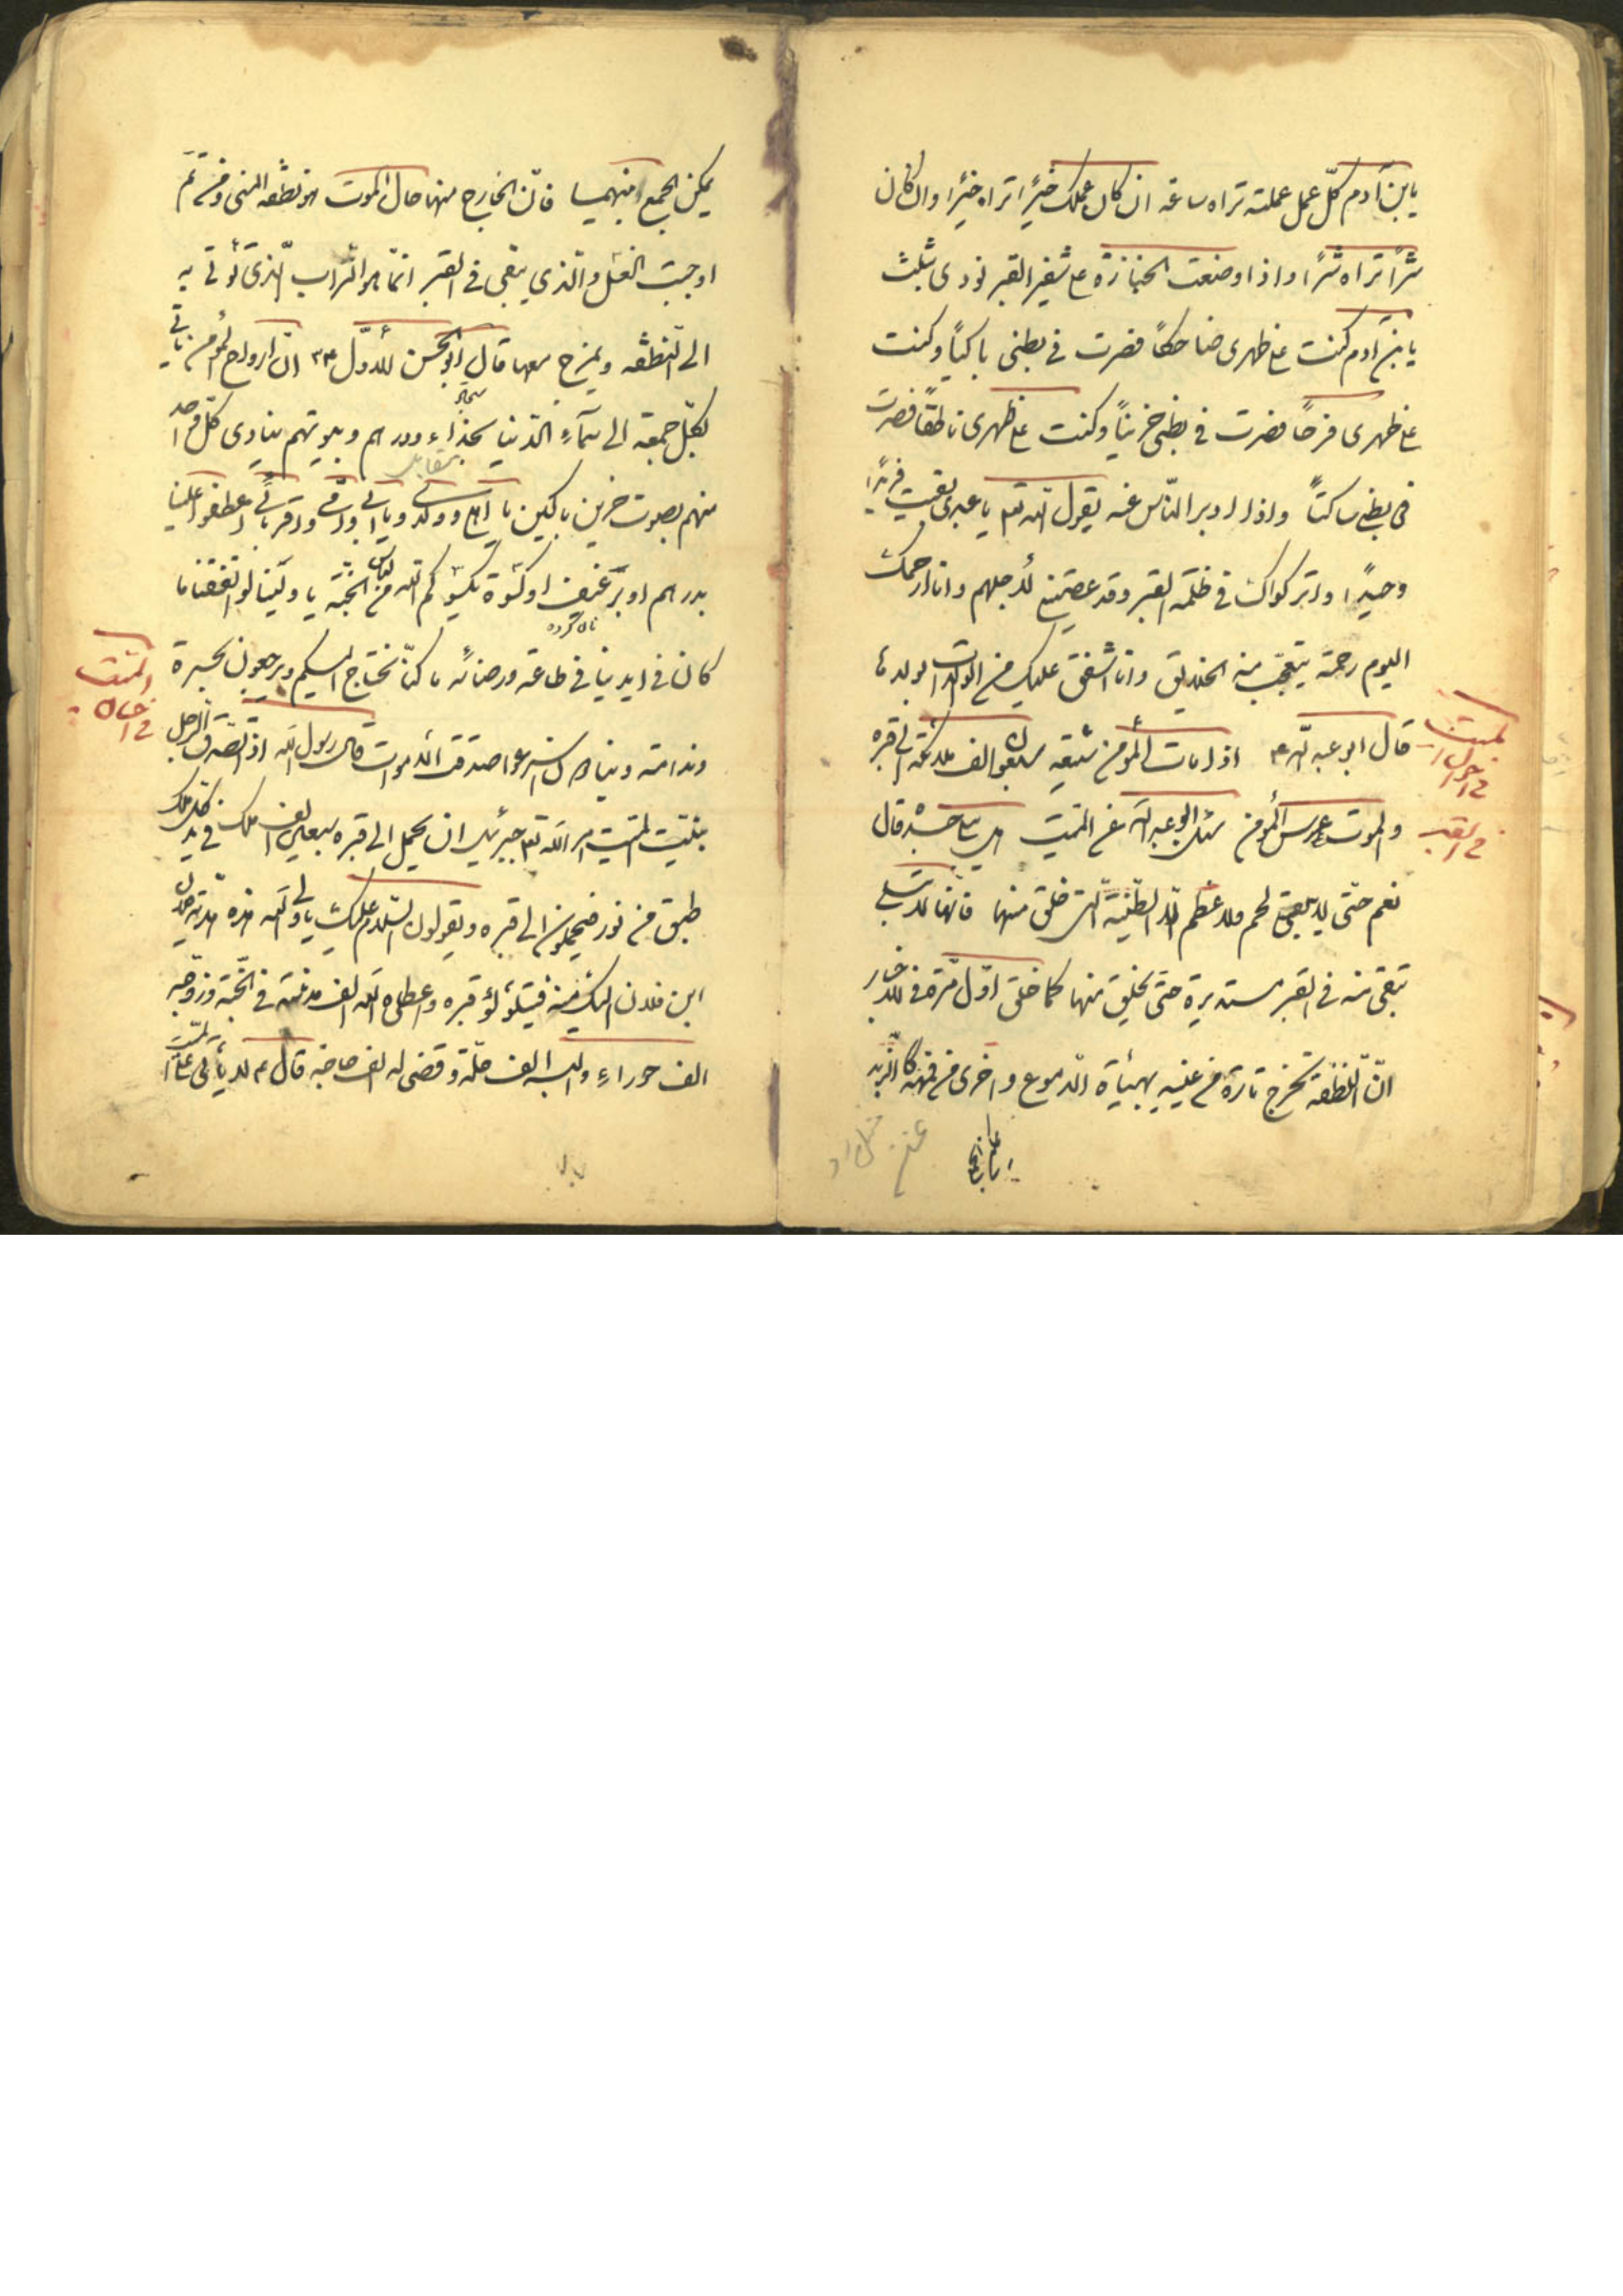 يابن آدم كلّ عمل عملته تراه ساعة ان كان عملك خيرًا تراه خيرًا وان كان
شرًّا تراه شرًّا واذا وضعت الجنازة على شفير القبر نودى بثلث
يابن آدم كنت على ظهرى ضاحكًا فصرت فى بطنى باكيًا وكنت
على ظهرى فرحًا فصرت فى بطنى حزينًا وكنت على ظهرى ناطقًا فصرت
فى بطنى ساكتًا واذا ادبر الناس عنه يقول الله تعالى يا عبدى بقيت فريدًا
وحيدًا وتركوك فى ظلمة القبر وقد عصيتنى لاجلهم وانا ارحمك
اليوم رحمة يتعجّب منه الخلايق وانا اشفق عليك من الوالدة بولدها
قال ابو عبد الله ع اذا مات المؤمن شيّعه سبعون الف ملائكة الى قبره
والموت عرس المؤمن سئل ابو عبد الله عن الميّت هل يبلى جسده قال
نعم حتى لا يبقى لحم ولا عظم الّا الطينة الّتى خلق منها فانّها لا تبلى
تبقى منه فى القبر مستديرة حتى يخلق منها كما خلق اوّل مرّة فى الاخبار
انّ النطفة تخرج تارة من عينيه بهيأة الدموع واخرى من فمه كالزبد
الميت
فى احوال
فى القبر
يمكن الجمع بينهما فانّ الخارج منها حال الموت هو نطفة المنى ومن ثمّ
اوجبت الغسل والّذى يبقى فى القبر انّما هو التراب الّذى تؤتى به
الى النطفة ويمزج معها قال ابو الحسن الاوّل ع انّ ارواح المؤمن ياتى
لكلّ جمعة الى سمآء الدنيا بحذاء دورهم وبيوتهم ينادى كلّ واحد
بمقابل
منهم بصوت حزين باكين يا اهلى وولدى ويا ابى وامّى واقربائى اعطفوا علينا
بدرهم او برغيف او كسوة يكسوكم الله من لباس الجنّة يا ويلنا لو انفقنا ما
نان كرده
كان فى ايدينا فى طاعة ورضائه ما كنّا نحتاج اليكم ويرجعون بحسرة
وندامة وينادون اسرعوا صدقة الاموات قال رسول الله اذا تصدّق الرجل
بنيّت الميّت امر الله تعالى جبرئيل ان يحمل الى قبره سبعين الف ملك فى يد كلّ ملك
طبق من نور فيحملون الى قبره ويقولون السلام عليك يا ولى الله هذه هديّة فلان
ابن فلان اليك فيتلألؤ قبره واعطاه الله الف مدينة فى الجنّة وزوّجه
الف حوراء والبسه الف حلّة وقضى له الف حاجة قال ع لا يأتى على الميّت
الميت